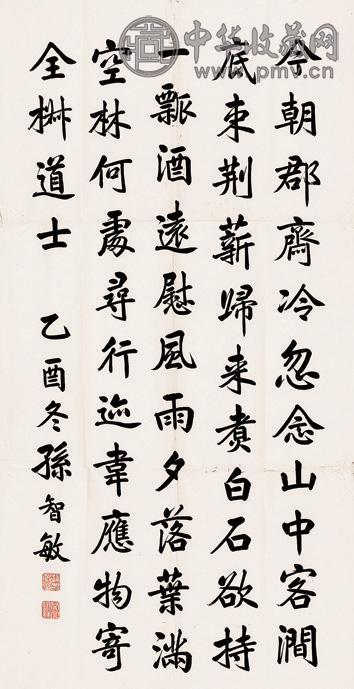 中华收藏网
www.pmv.cn
今朝郡齋冷忽念山中客澗
底束荆薪歸来煮白石欲持
一瓢酒遠慰風雨夕落葉滿
空林何處尋行迹韋應物寄
全椒道士 乙酉冬孫智敏